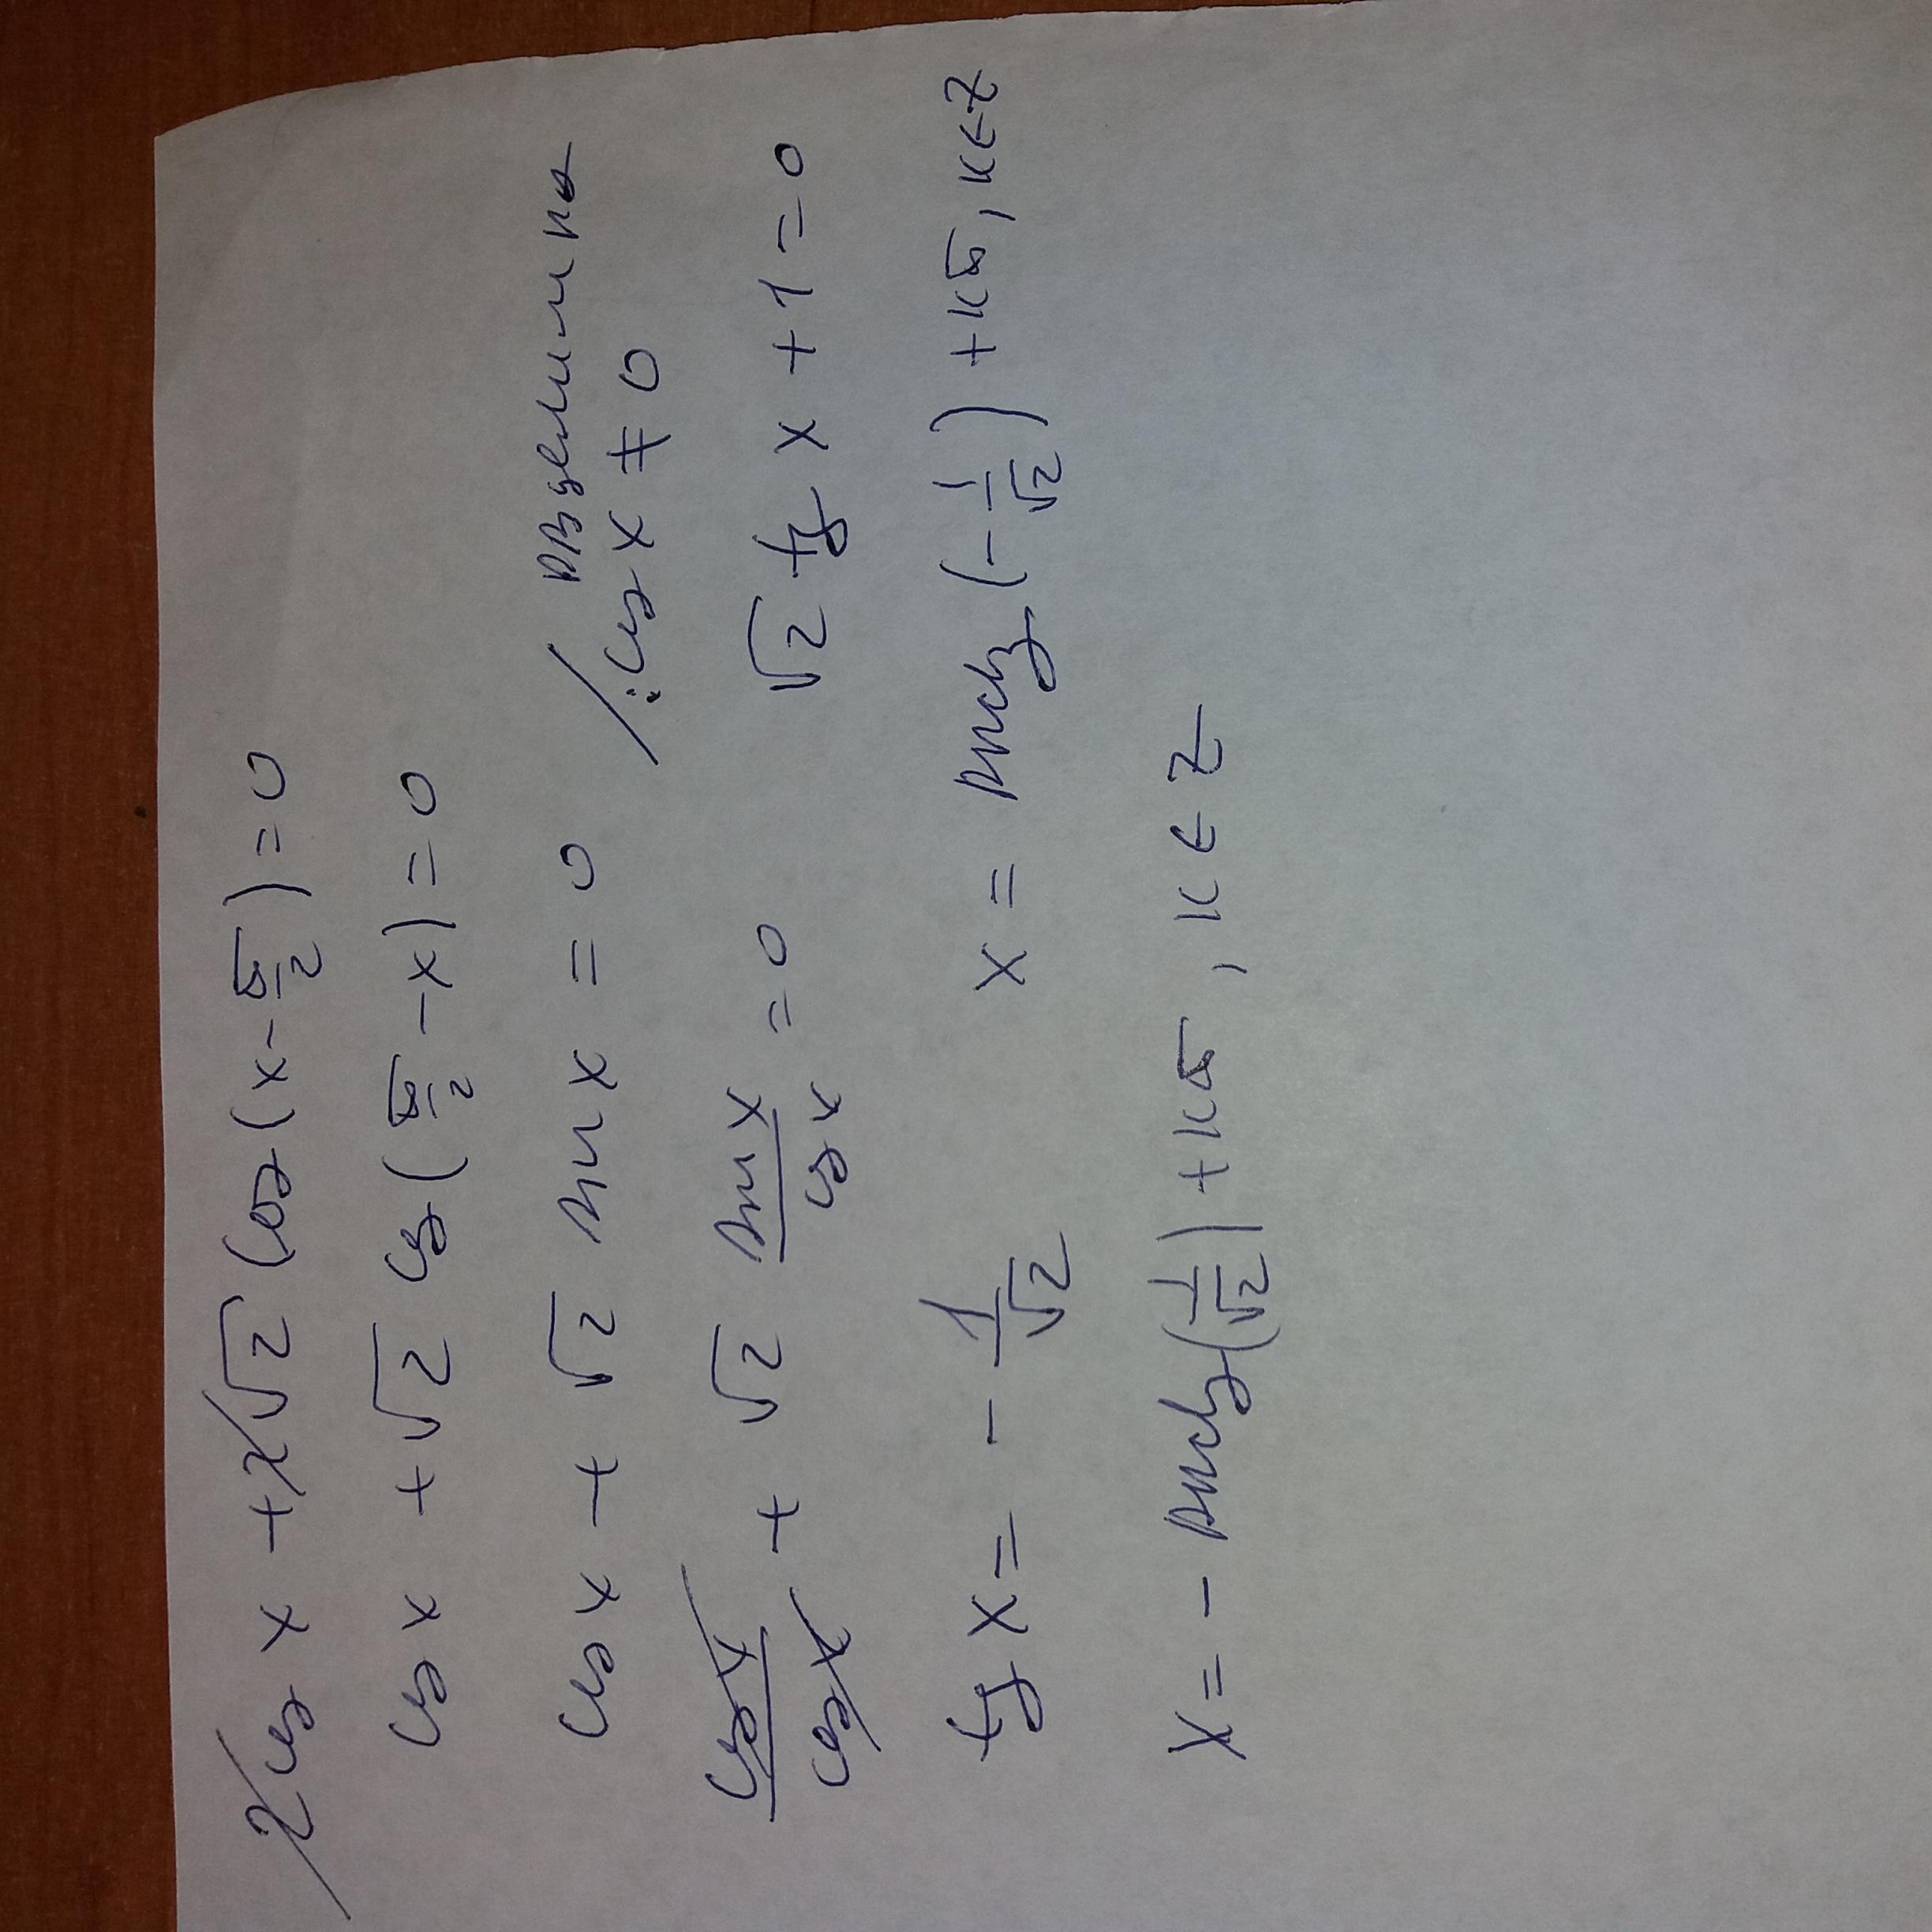 2cos x + 2√2 cos(x - π/2) = 0
cos x + √2 cos(π/2 - x) = 0
cos x + √2 sin x = 0 / : cos x ≠ 0
cos x/cos x + √2 sin x/cos x = 0 √2 tg x + 1 = 0
tg x = - 1/√2 x = arctg(-1/√2) + kπ, k∈Z
x = - arctg(1/√2) + kπ, k∈Z